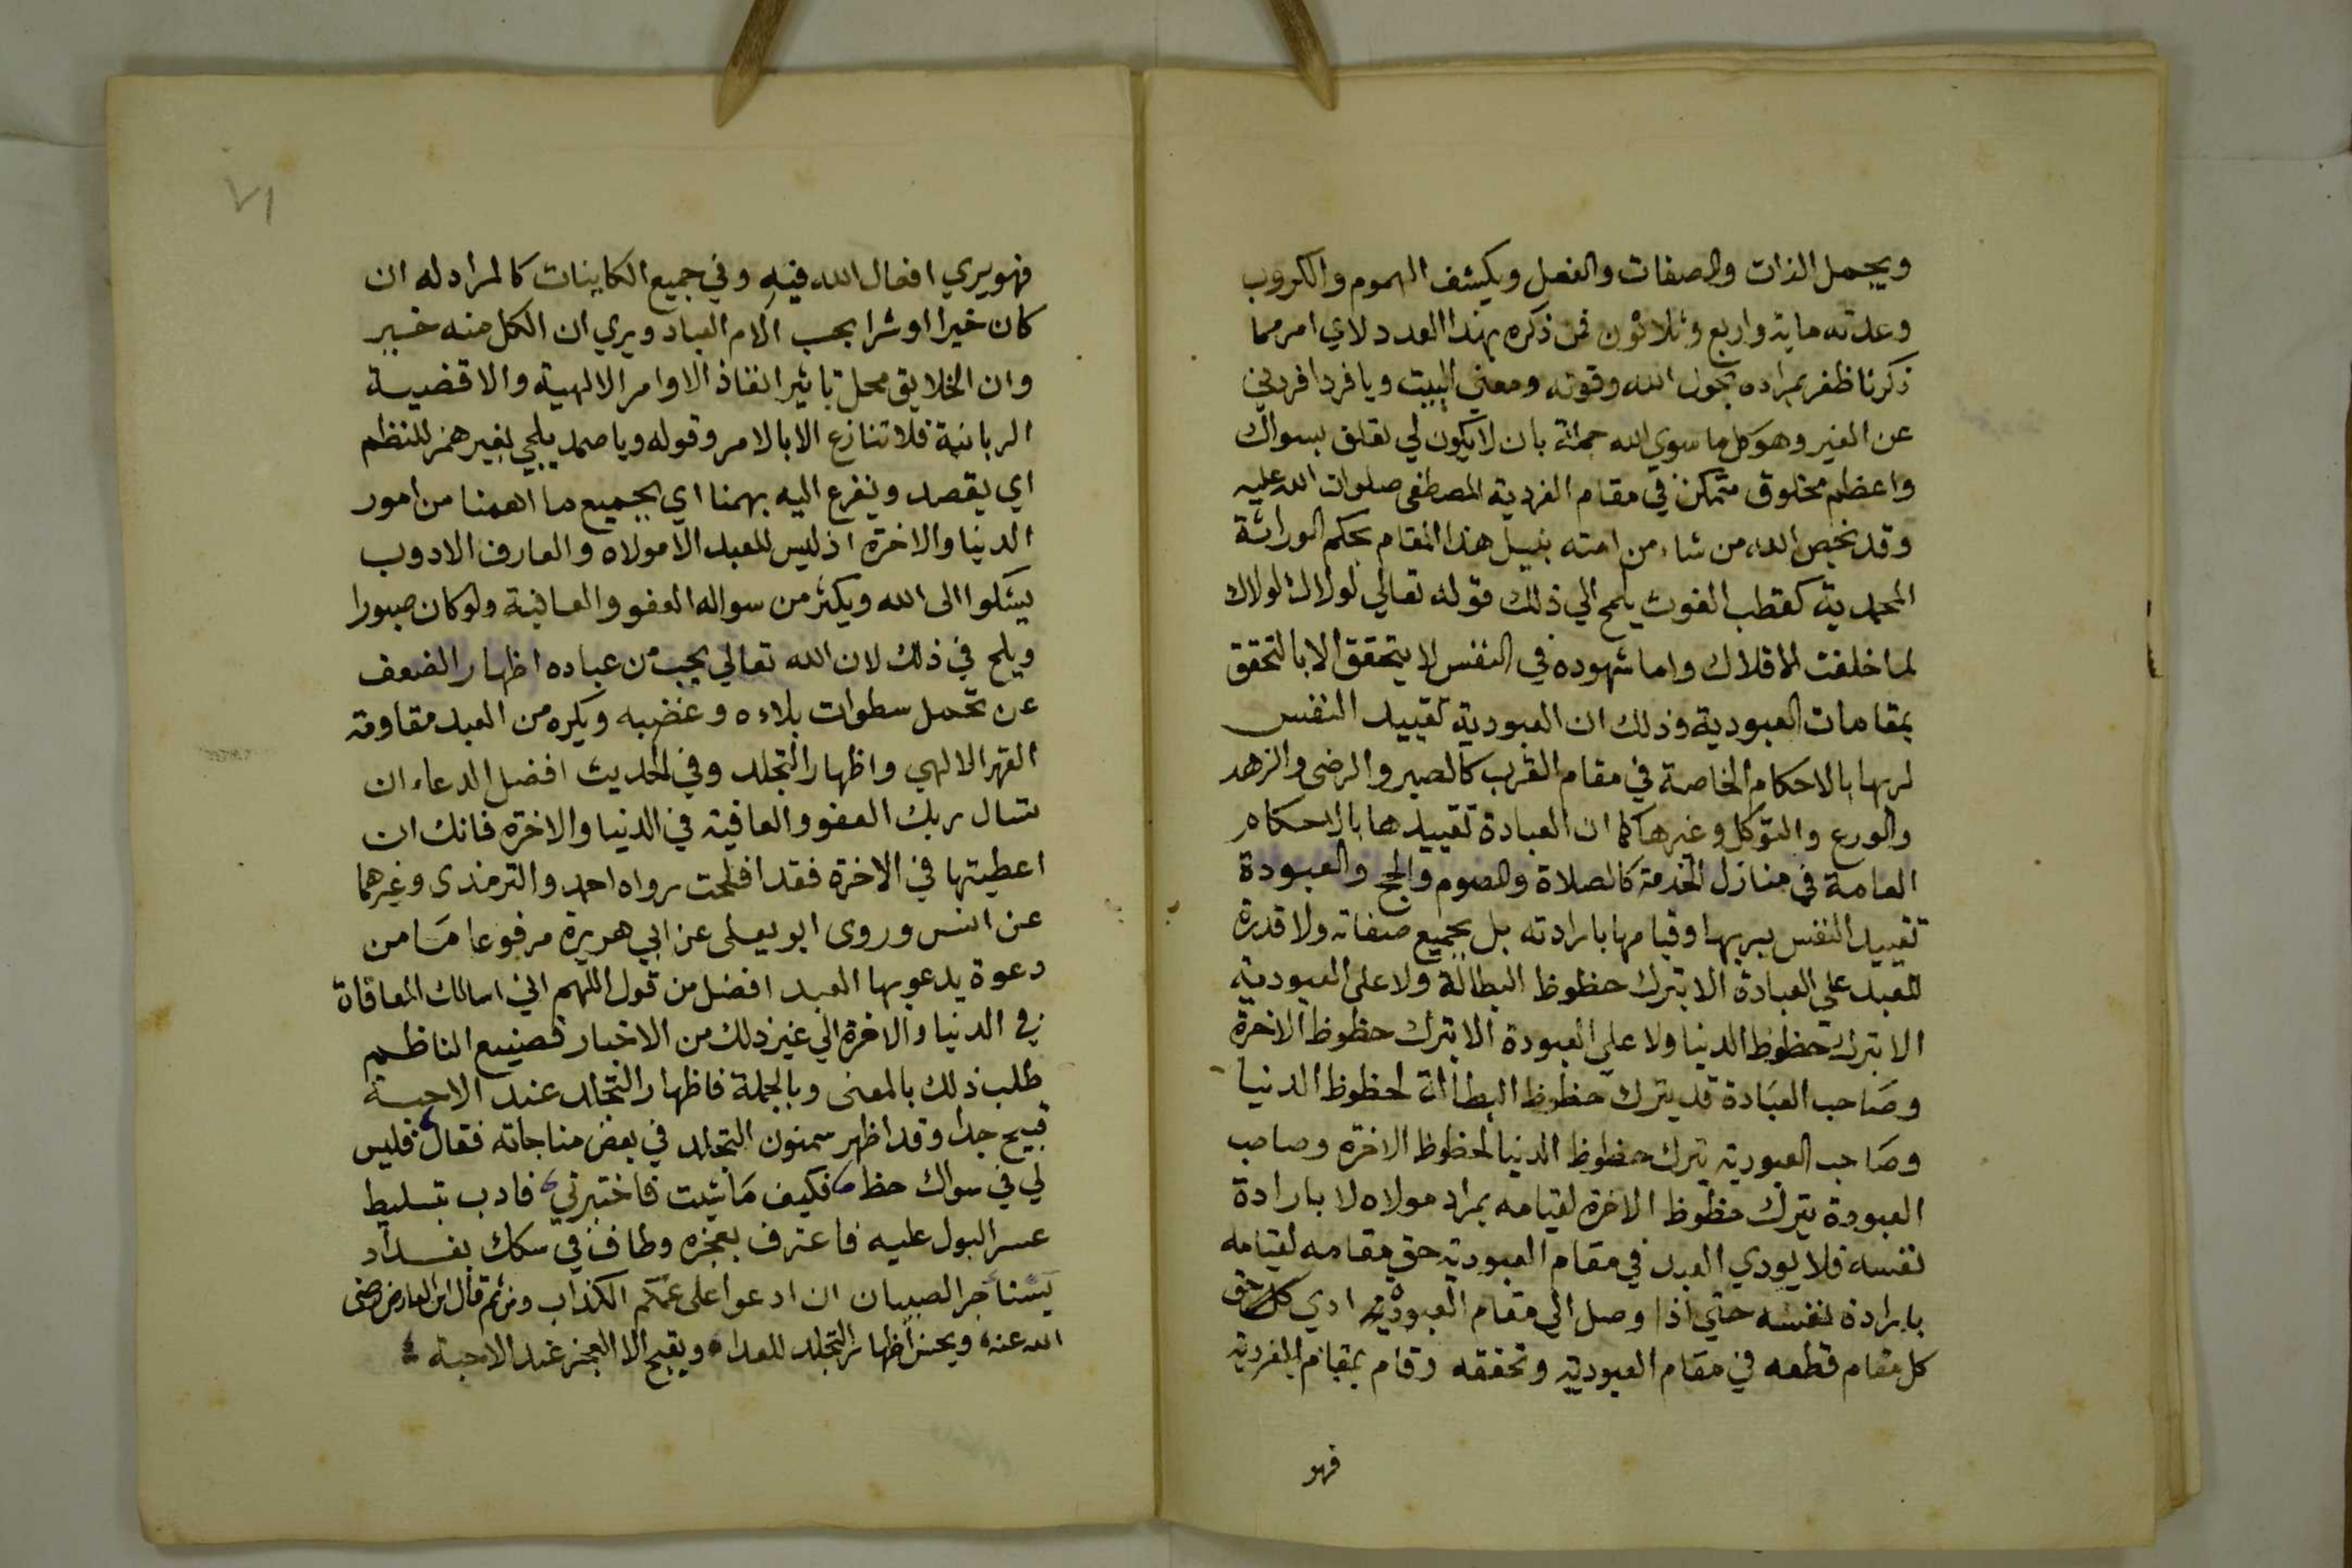 ويجمل الذات والصفات والفعل ويكشف الهموم والكروب
وعدته ماية واربع وثلاثون فمن ذكره بهذا العدد لاي امر مما
ذكرنا ظفر بمراده بحول الله وقوته ومعني البيت ويا فرد افردني
عن الغير وهو كل ما سوي الله جملة بان لا يكون لي تعلق بسواك
واعظم مخلوق متمكن في مقام الفردية المصطفى صلوات الله عليه
وقد يخص الله من شاء من امته بنيل هذا المقام بحكم الوراثة
المحمدية كقطب الغوث يلمح الي ذلك قوله تعالي لولاك لولاك
لما خلقت الافلاك واما شهوده في النفس لا يتحقق الا بالتحقق
بمقامات العبودية وذلك ان العبودية تقييد النفس
لربها بالاحكام الخاصة في مقام القرب كالصبر والرضى والزهد
والورع والتوكل وغيرها كما ان العبادة تقييدها بالاحكام
العامة في منازل الخدمة كالصلاة والصوم والحج والعبودة
تقييد النفس بربها وقيامها بارادته بل بجميع صفاته ولا قدرة
للعبد علي العبادة الا بترك حظوظ البطالة ولا على العبودية
الا بترك حظوظ الدنيا ولا علي العبودة الا بترك حظوظ الاخرة
وصاحب العبادة قد يترك حظوظ البطالة لحظوظ الدنيا
وصاحب العبودية يترك حظوظ الدنيا لحظوظ الاخرة وصاحب
العبودة يترك حظوظ الاخرة لقيامه بمراد مولاه لا بارادة
نفسه فلا يودي العبد في مقام العبودية حق مقامه لقيامه
بارادة نفسه حتي اذا وصل الي مقام العبودية ادي كل حق
كل مقام قطعه في مقام العبودية وتحققه وقام بمقام الفردية
فهو
٧١
فهو يري افعال الله فيه وفي جميع الكاينات كالمراد له ان
كان خيرا او شرا بحسب الام العباد ويري ان الكل منه خير
وان الخلايق محل تاثير انفاذ الاوامر الالهية والاقضية
الربانية فلا تنازع الا بالامر وقوله ويا صمد يلجي بغير همز للنظم
اي يقصد ويفزع اليه بهمنا اي بجميع ما اهمنا من امور
الدنيا والاخرة اذ ليس للعبد الا مولاه والعارف الادوب
يشكوا الى الله ويكثر من سواله العفو والعافية ولو كان صبورا
ويلح في ذلك لان الله تعالي يحب من عباده اظهار الضعف
عن تحمل سطوات بلاءه وغضبه ويكره من العبد مقاومة
القهر الالهي واظهار التجلد وفي الحديث افضل الدعاء ان
تسال ربك العفو والعافية في الدنيا والاخرة فانك ان
اعطيتها في الاخرة فقد افلحت رواه احمد والترمذى وغيرهما
عن انس وروى ابو يعلى عن ابي هريرة مرفوعا ما من
دعوة يدعو بها العبد افضل من قول اللهم اني اسالك المعافاة
في الدنيا والاخرة الي غير ذلك من الاخبار فصنيع الناظم
طلب ذلك بالمعنى وبالجملة فاظهار التجلد عند الاحبة
قبيح جدا وقد اظهر سمنون التجلد في بعض مناجاته فقال فليس
لي في سواك حظ فكيف ما شيت فاختبرني فادب بتسليط
عسر البول عليه فاعترف بعجزه وطاف في سكك بغداد
يستاجر الصبيان ان ادعوا على عمكم الكذاب ومن ثم قال ابن الفارض رضى
الله عنه ويحسن اظهار التجلد للعدا ويقبح الا العجز عند الاحبة